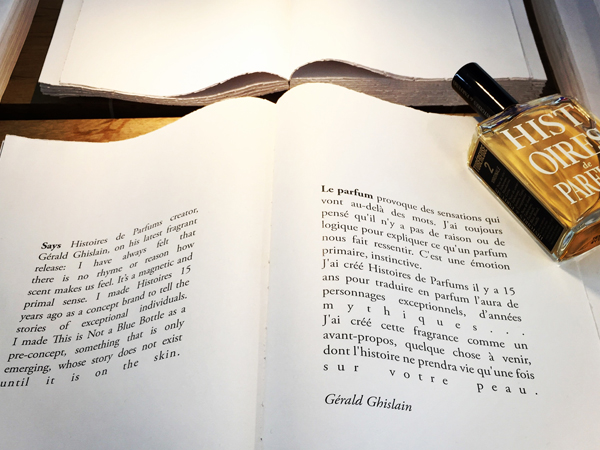 Says Histoires de Parfums creator,
Gérald Ghislain, on his latest fragrant
release: I have always felt that
there is no rhyme or reason how
scent makes us feel. It's a magnetic and
primal sense. I made Histoires 15
years ago as a concept brand to tell the
stories of exceptional individuals.
I made This is Not a Blue Bottle as a
pre-concept, something that is only
emerging, whose story does not exist
until it is on the skin.
Le parfum provoque des sensations qui
vont au-delà des mots. J'ai toujours
pensé qu'il n'y a pas de raison ou de
logique pour expliquer ce qu'un parfum
nous fait ressentir. C'est une émotion
primaire, instinctive.
J'ai créé Histoires de Parfums il y a 15
ans pour traduire en parfum l'aura de
personnages exceptionnels, d'années
mythiques...
J'ai créé cette fragrance comme un
avant-propos, quelque chose à venir,
dont l'histoire ne prendra vie qu'une fois
sur votre peau.
Gérald Ghislain
HIST
OIRES
de
PARF